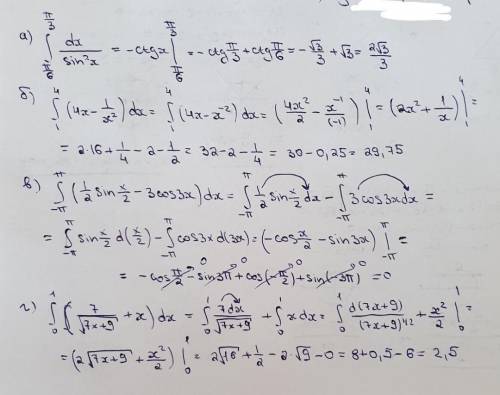 а) ∫_{π/6}^{π/3} dx/sin²x = -ctgx |_{π/6}^{π/3} = -ctg π/3 + ctg π/6 = -√3/3 + √3 = 2√3/3
б) ∫_1^4 (4x - 1/x²) dx = ∫_1^4 (4x - x⁻²) dx = (4x²/2 - x⁻¹/(-1)) |_1^4 = (2x² + 1/x) |_1^4 =
= 2·16 + 1/4 - 2 - 1/2 = 32 - 2 - 1/4 = 30 - 0,25 = 29,75
в) ∫_{-π}^{π} (1/2 sin x/2 - 3cos3x) dx = ∫_{-π}^{π} 1/2 sin x/2 dx - ∫_{-π}^{π} 3cos3xdx =
= ∫_{-π}^{π} sin x/2 d(x/2) - ∫_{-π}^{π} cos3x d(3x) = (-cos x/2 - sin3x) |_{-π}^{π} =
= -cos π/2 - sin3π + cos(-π/2) + sin(-3π) = 0
г) ∫_0^1 (7/√(7x+9) + x) dx = ∫_0^1 7dx/√(7x+9) + ∫_0^1 xdx = ∫_0^1 d(7x+9)/(7x+9)^{1/2} + x²/2 |_0^1 =
= (2√(7x+9) + x²/2) |_0^1 = 2√16 + 1/2 - 2·√9 - 0 = 8 + 0,5 - 6 = 2,5